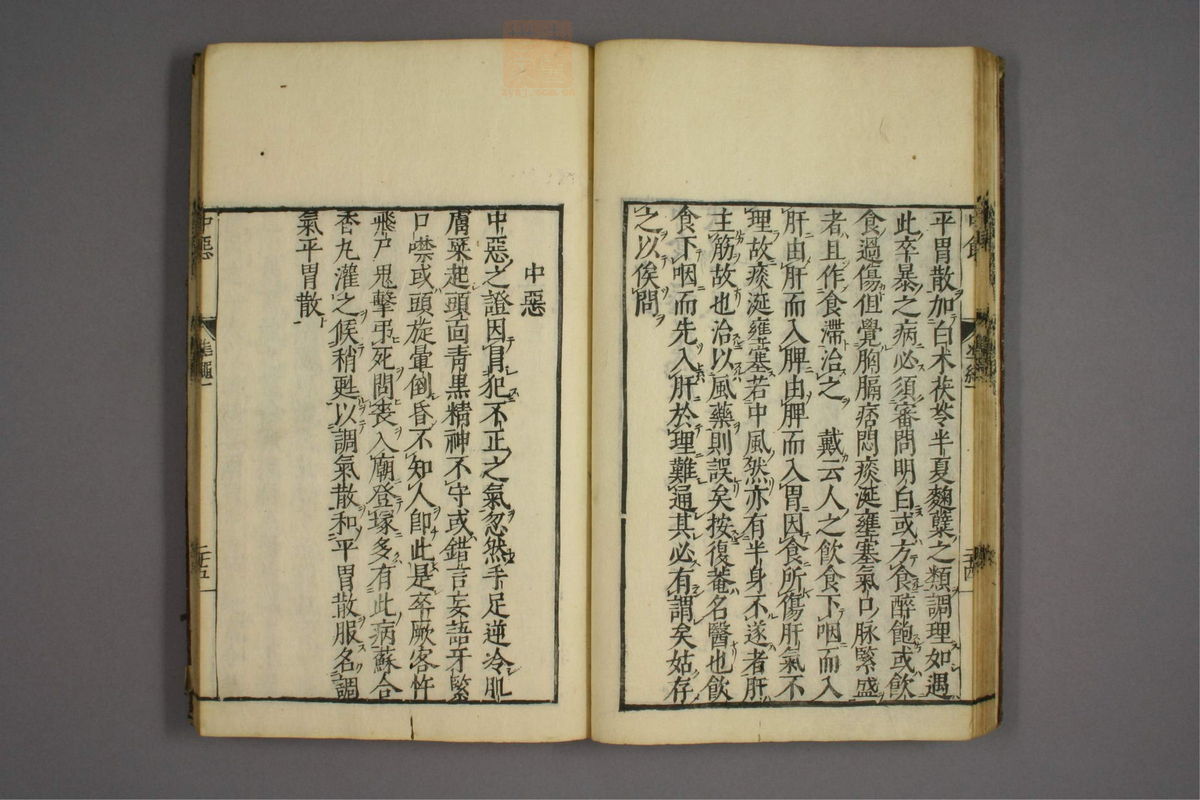 平胃散加白术茯苓半夏麴糵之類調理如遇
此卒暴之病必須審問明白或方食醉飽或飲
食過傷但覺胸膈痞悶痰涎壅塞氣口脉緊盛
者且作食滯治之　戴云人之飲食下咽而入
肝由肝而入脾由脾而入胃因食所傷肝氣不
理故痰涎壅塞若中風然亦有半身不遂者肝
主筋故也治以風藥則誤矣按復菴名醫也飲
食下咽而先入肝於理難通其必有謂矣姑存
之以俟問
中惡
中惡之證因冐犯不正之氣忽然手足逆冷肌
膚粟起頭面青黑精神不守或錯言妄語牙緊
口噤或頭旋暈倒昏不知人卽此是卒厥客忤
飛尸鬼擊弔死問喪入廟登塚多有此病蘇合
香丸灌之候稍甦以調氣散和平胃散服名調
氣平胃散
中惡
準繩一
二十五